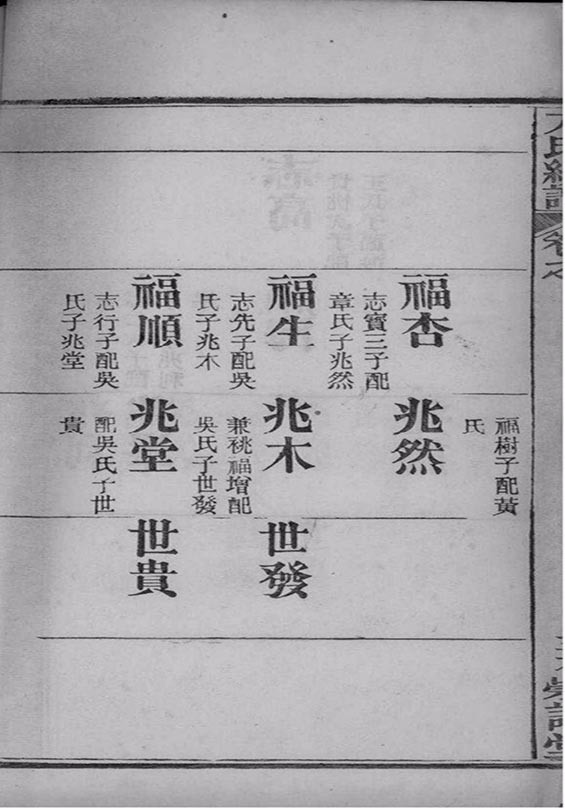 氏
卷
福樹子配黃
氏
福杏
志寶三子配
章氏子兆然
兆然
福生
志先子配吳
氏子兆木
兆木
兼祧福增配
吳氏子世發
世發
福順
志行子配吳
氏子兆堂
兆堂
配吳氏子世
貴
世貴